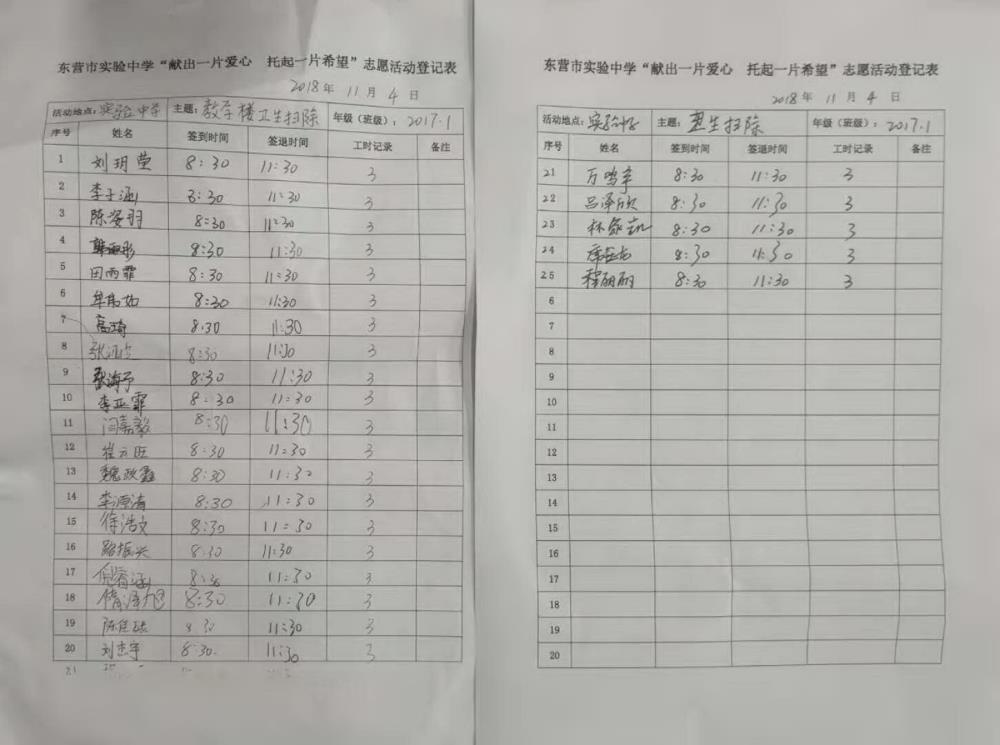 东营市实验中学“献出一片爱心 托起一片希望”志愿活动登记表
2018年 11月 4日
活动地点：实验中学 主题：教学楼卫生扫除 年级（班级）：2017.1
序号 姓名 签到时间 签退时间 工时记录 备注
1 刘玥莹 8:30 11:30 3
2 李子涵 8:30 11:30 3
3 陈姿羽 8:30 11:30 3
4 8:30 11:30 3
5 田雨霏 8:30 11:30 3
6 牟韦如 8:30 11:30 3
7 高琦 8:30 11:30 3
8 8:30 11:30 3
9 张海予 8:30 11:30 3
10 李亚霏 8:30 11:30 3
11 闫嘉毅 8:30 11:30 3
12 崔云旺 8:30 11:30 3
13 魏政鑫 8:30 11:30 3
14 李源清 8:30 11:30 3
15 徐浩文 8:30 11:30 3
16 路振兴 8:30 11:30 3
17 倪睿涵 8:30 11:30 3
18 8:30 11:30 3
19 8:30 11:30 3
20 刘杰宇 8:30 11:30 3
21
东营市实验中学“献出一片爱心 托起一片希望”志愿活动登记表
2018年 11月 4日
活动地点：实验中学 主题：卫生扫除 年级（班级）：2017.1
序号 姓名 签到时间 签退时间 工时记录 备注
21 万鸣宇 8:30 11:30 3
22 吕泽欣 8:30 11:30 3
23 8:30 11:30 3
24 8:30 11:30 3
25 程丽丽 8:30 11:30 3
6
7
8
9
10
11
12
13
14
15
16
17
18
19
20